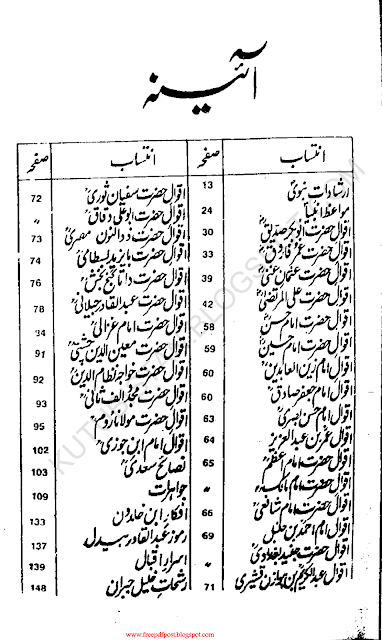 آئینہ
انتساب صفحہ
ارشادات نبویؐ 13
مواعظ انبیا 24
اقوال حضرت ابوبکر صدیقؓ 30
اقوال حضرت عمر فاروقؓ 33
اقوال حضرت عثمان غنیؓ 39
اقوال حضرت علی المرتضیٰؓ 42
اقوال حضرت امام حسنؓ 58
اقوال حضرت امام حسینؓ 59
اقوال امام زین العابدینؓ 60
اقوال امام جعفر صادقؓ 60
اقوال امام حسن بصریؒ 63
اقوال عمر بن عبدالعزیزؒ 64
اقوال حضرت امام اعظمؒ 65
اقوال حضرت امام مالکؒ "
اقوال حضرت امام شافعیؒ 66
اقوال امام احمد بن حنبلؒ 69
اقوال حضرت جنید بغدادیؒ "
اقوال عبدالکریم بن ہوازن قشیریؒ 71
انتساب صفحہ
اقوال حضرت سفیان ثوریؒ 72
اقوال حضرت ابو علی دقاقؒ "
اقوال حضرت ذوالنون مصریؒ 73
اقوال حضرت بایزید بسطامیؒ 74
اقوال حضرت داتا گنج بخشؒ 76
اقوال حضرت عبدالقادر جیلانیؒ 78
اقوال حضرت امام غزالیؒ 84
اقوال حضرت معین الدین چشتیؒ 91
اقوال حضرت خواجہ نظام الدینؒ 92
اقوال حضرت مجدد الف ثانیؒ 93
اقوال حضرت مولانا رومؒ 95
اقوال امام ابن جوزیؒ 102
نصائح سعدیؒ 103
جواہرات 109
افکار ابن خلدون 133
رموز عبدالقادر بیدل 137
اسرار اقبال 139
رشحات خلیل جبران 148
www.freepdfpost.blogspot.com